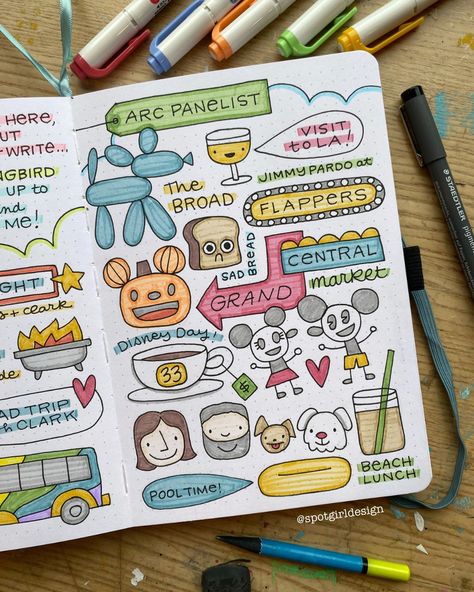 HERE,
UT
-WRITE...
NGBIRD
UP to
ME!
GHT!
s + clark
AD TRIP
CLARK
ARC PANELIST
VISIT
to LA!
THE
BROAD
JIMMY PARDO at
FLAPPERS
SAD
BREAD
CENTRAL
market
GRAND
DISNEY DAY!
33
POOL TIME!
BEACH
LUNCH
@spotgirldesign
STAEDTLER